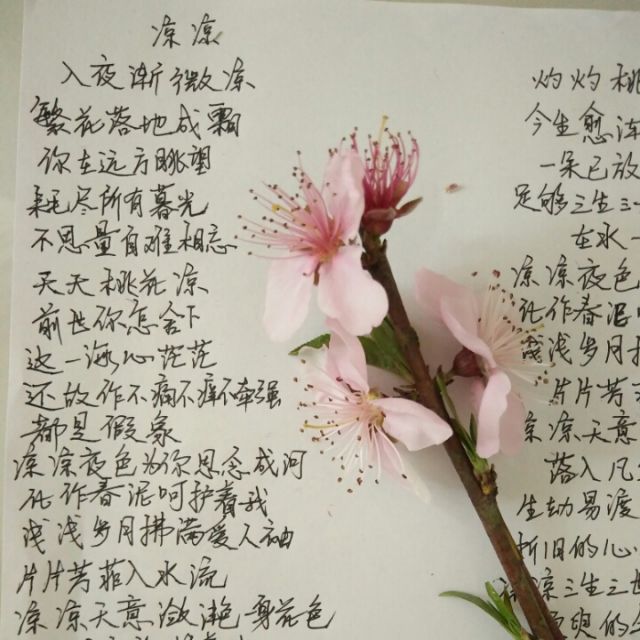 凉凉
入夜渐微凉
繁花落地成霜
你在远方眺望
耗尽所有暮光
不思量自难相忘
夭夭桃花凉
前世你怎舍下
这一海心茫茫
还故作不痛不痒不牵强
都是假象
凉凉夜色为你思念成河
化作春泥呵护着我
浅浅岁月拂满爱人袖
片片芳菲入水流
凉凉天意潋滟一身花色
灼灼桃
今生愈
一朵已放
足够三生三
在水一
凉凉夜色
化作春泥
浅浅岁月
片片芳
凉凉天意
落入凡
生劫易渡
折旧的心
凉凉三生三世